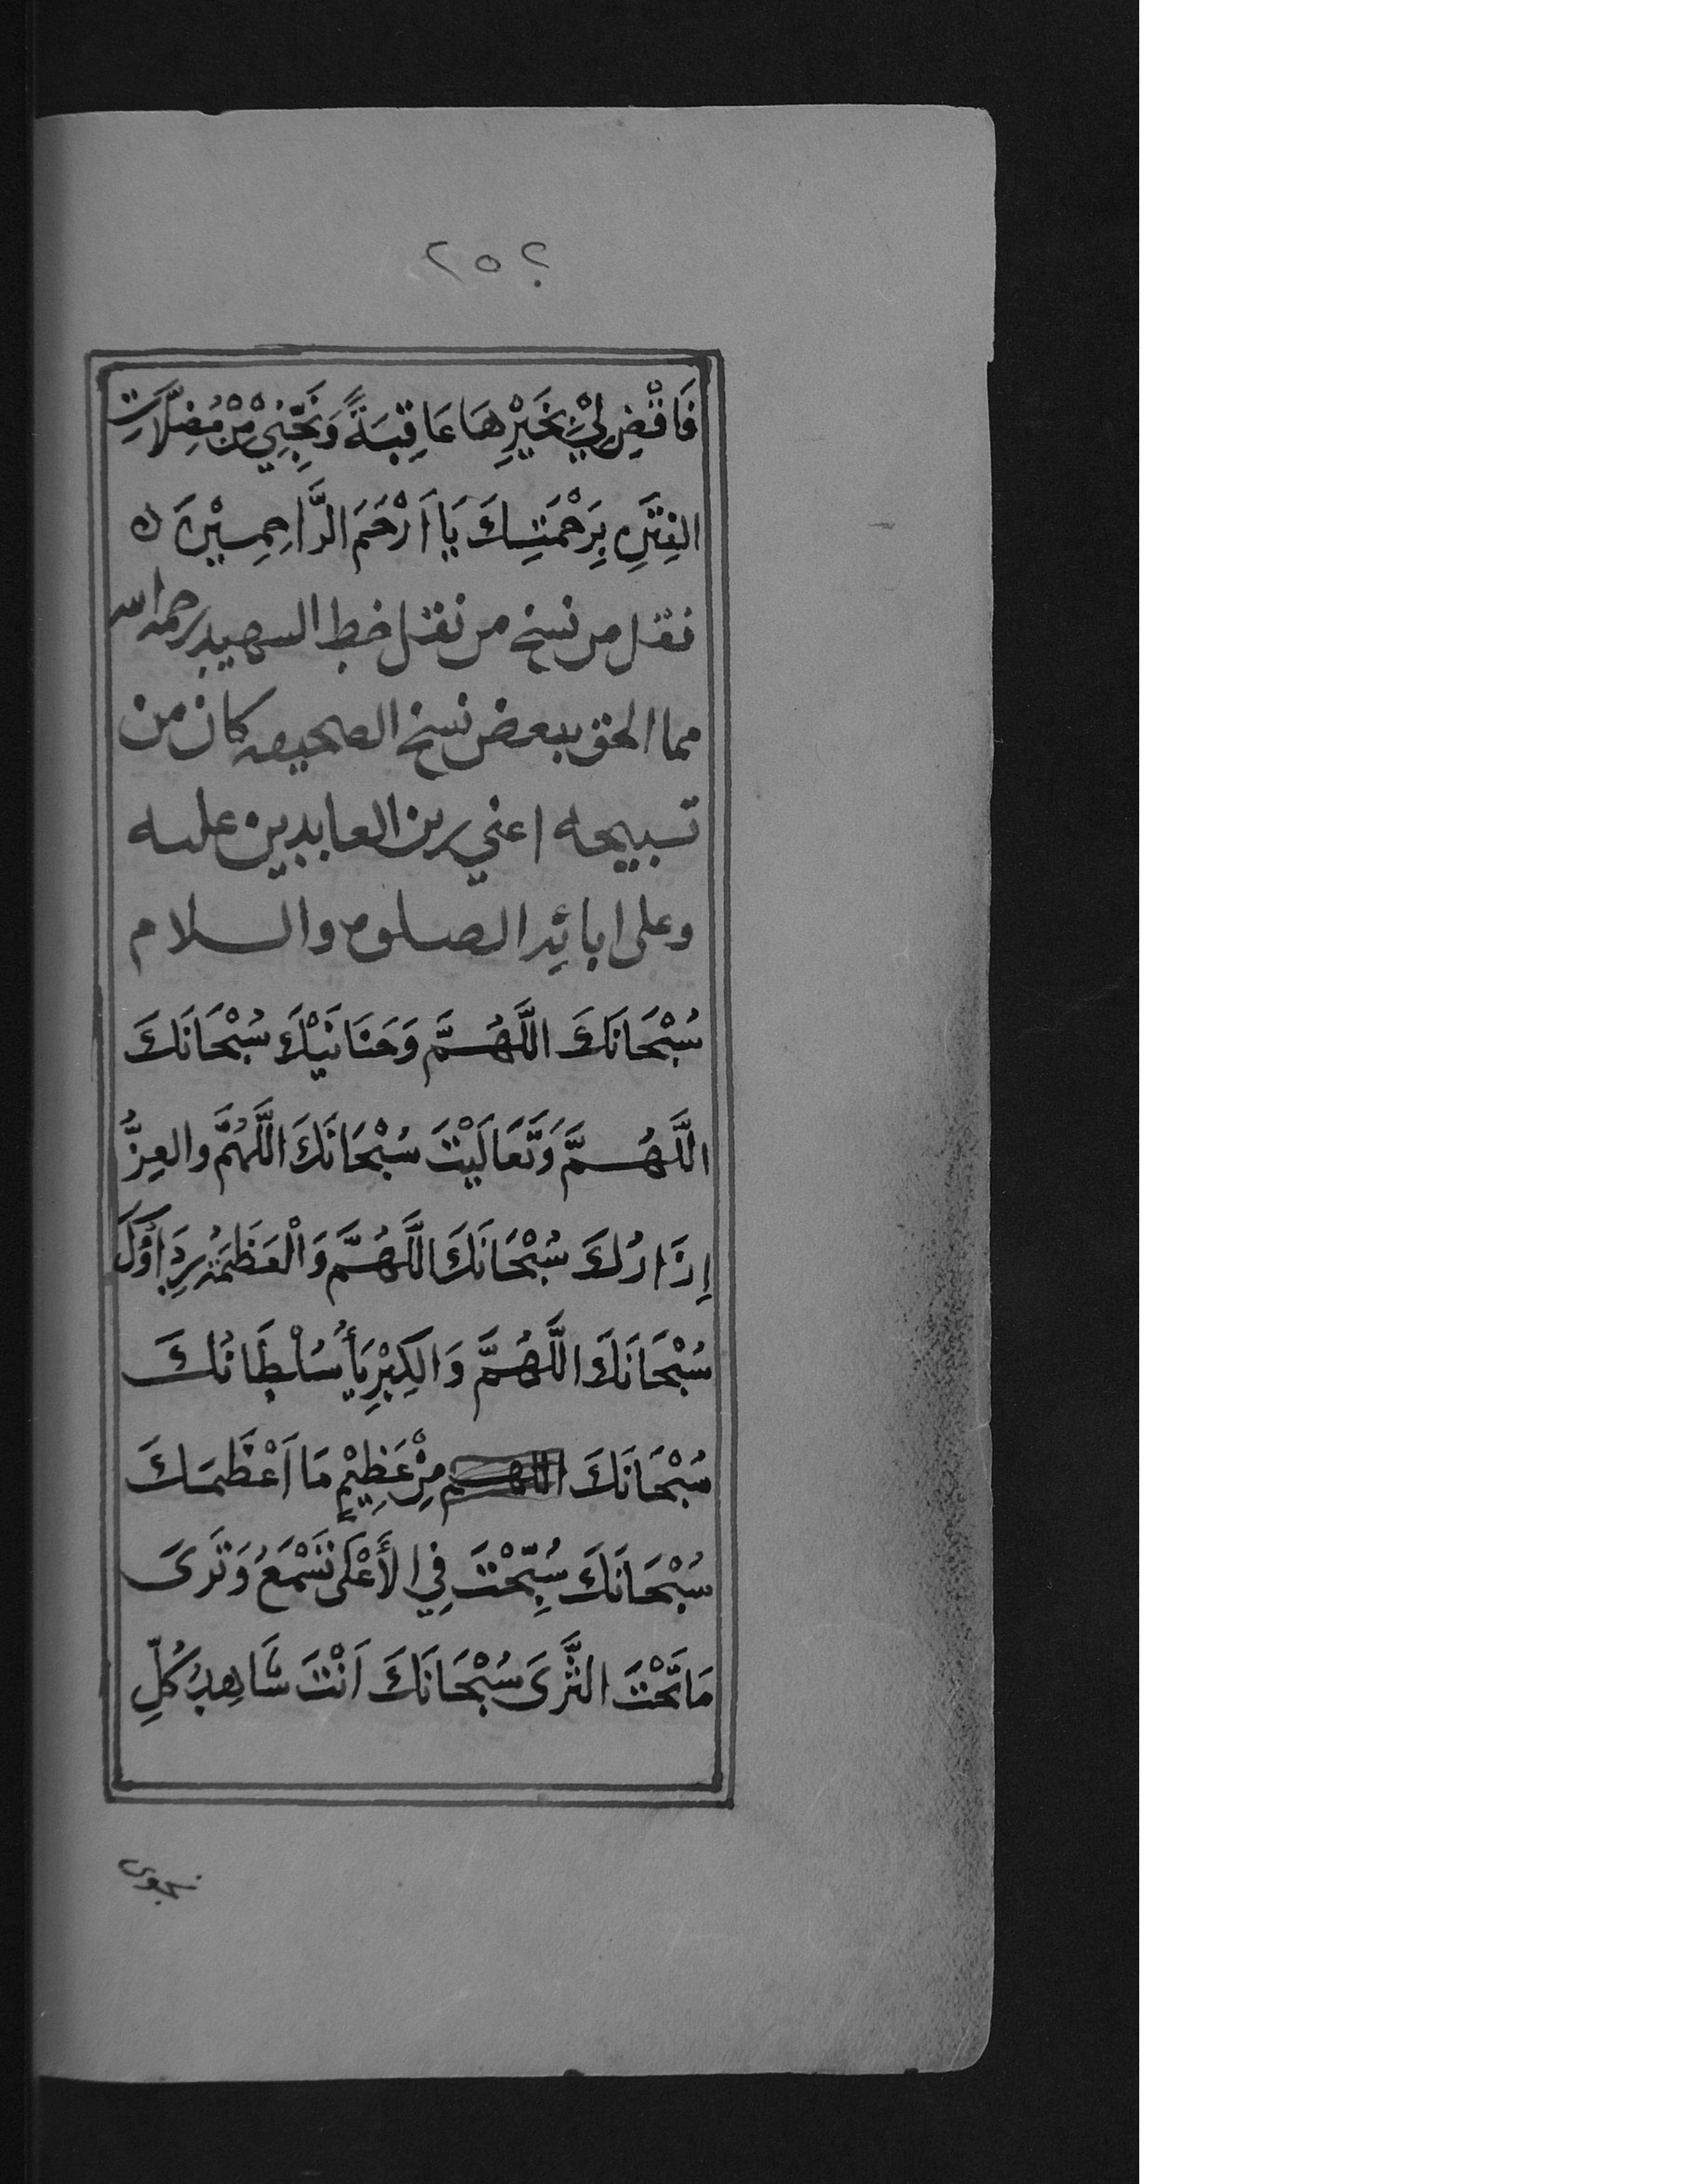 ٢٥٢
فَاقْضِ لِيْ بِخَيْرِهَا عَاقِبَةً وَنَجِّنِيْ مِنْ مُضِلَّاتِ
الفِتَنِ بِرَحْمَتِكَ يَا اَرْحَمَ الرَّاحِمِيْنَ ٥
نقل من نسخ من نقل خط الشهيد رحمه الله
مما الحق ببعض نسخ الصحيفه كان من
تسبيحه اعني زين العابدين عليه
وعلى ابائه الصلوه والسلام
سُبْحَانَكَ اللَّهُمَّ وَحَنَانَيْكَ سُبْحَانَكَ
اللَّهُمَّ وَتَعَالَيْتَ سُبْحَانَكَ اللَّهُمَّ والعِزُّ
اِزَارُكَ سُبْحَانَكَ اللَّهُمَّ وَالْعَظَمَةُ رِدَاؤُكَ
سُبْحَانَكَ اللَّهُمَّ وَالكِبْرِيَأُ سُلْطَانُكَ
سُبْحَانَكَ اللهم مِنْ عَظِيْمٍ مَا اَعْظَمَكَ
سُبْحَانَكَ سُبِّحْتَ فِي الأَعْلَى تَسْمَعُ وَتَرَى
مَا تَحْتَ الثَّرَى سُبْحَانَكَ اَنْتَ شَاهِدُ كُلِّ
نجوى